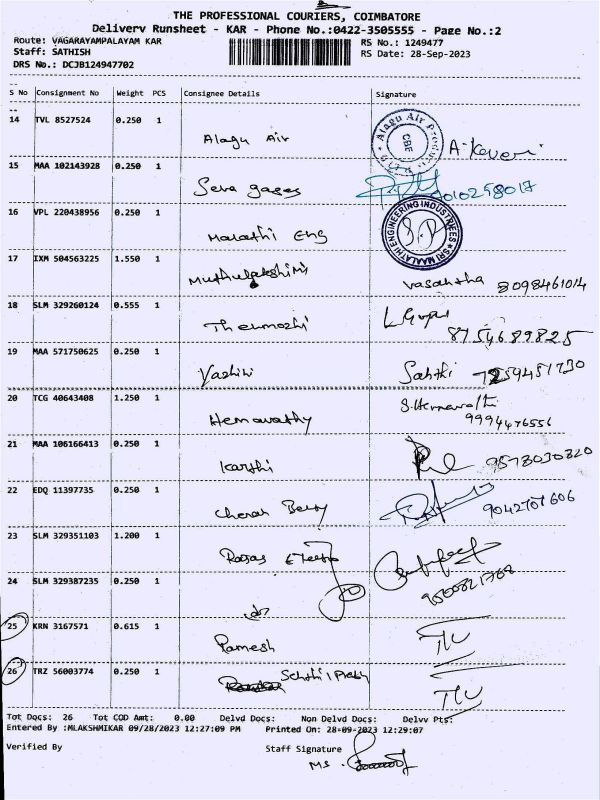 THE PROFESSIONAL COURIERS, COIMBATORE
Delivery Runsheet - KAR - Phone No.:0422-3505555 - Page No.:2
Route: VAGARAYAMPALAYAM KAR RS No.: 1249477
Staff: SATHISH RS Date: 28-Sep-2023
DRS No.: DCJB124947702
S No Consignment No Weight PCS Consignee Details Signature
14 TVL 8527524 0.250 1
Alagu Air
Alagu Air
CBE
15 MAA 102143928 0.250 1
Seva gases
16 VPL 220438956 0.250 1
Marathi Eng
SRI MAALATHI ENGINEERING INDUSTRIEES
17 IXM 504563225 1.550 1
Muthulakshimi Vasahtha 8098461014
18 SLM 329260124 0.555 1
Thenmozhi
8754689825
19 MAA 571750625 0.250 1
Yashini
20 TCG 40643408 1.250 1
Hemavathy S.Hemavathi
9994476556
21 MAA 106166413 0.250 1
Karthi 9578030820
22 EDQ 11397735 0.250 1
9042701606
23 SLM 329351103 1.200 1
24 SLM 329387235 0.250 1
do
25 KRN 3167571 0.615 1
Ramesh
26 TRZ 56003774 0.250 1
Tot Docs: 26 Tot COD Amt: 0.00 Delvd Docs: Non Delvd Docs: Delvv Pts:
Entered By :MLAKSHMIKAR 09/28/2023 12:27:09 PM Printed On: 28-09-2023 12:29:07
Verified By Staff Signature